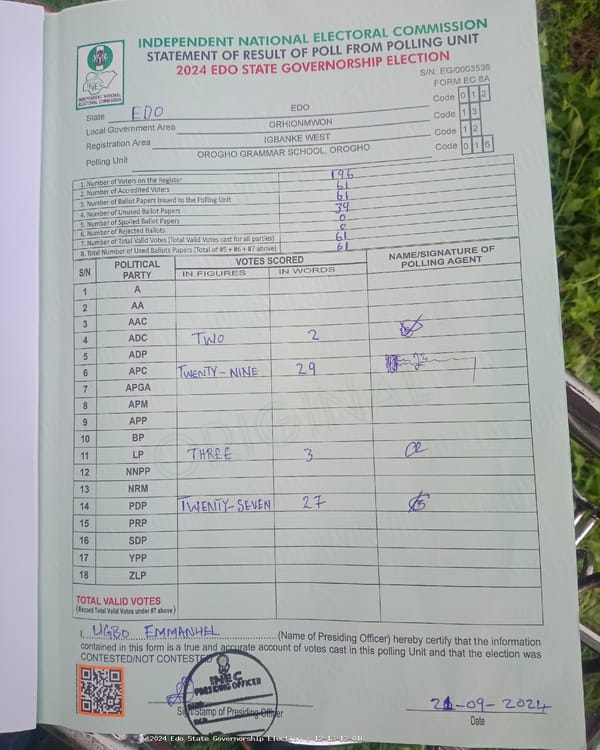 INDEPENDENT NATIONAL ELECTORAL COMMISSION
STATEMENT OF RESULT OF POLL FROM POLLING UNIT
2024 EDO STATE GOVERNORSHIP ELECTION
INEC
INDEPENDENT NATIONAL ELECTORAL COMMISSION
S/N: EG/0003536
FORM EC 8A
State EDO EDO Code 0 1 2
Local Government Area ORHIONMWON Code 1 3
Registration Area IGBANKE WEST Code 1 2
Polling Unit OROGHO GRAMMAR SCHOOL, OROGHO Code 0 1 6
1. Number of Voters on the Register 196
2. Number of Accredited Voters 61
3. Number of Ballot Papers Issued to the Polling Unit 61
4. Number of Unused Ballot Papers 39
5. Number of Spoiled Ballot Papers 0
6. Number of Rejected Ballots 0
7. Number of Total Valid Votes (Total Valid Votes cast for all parties) 61
8. Total Number of Used Ballots Papers (Total of #5 + #6 + #7 above) 61
S/N POLITICAL PARTY VOTES SCORED NAME/SIGNATURE OF POLLING AGENT
IN FIGURES IN WORDS
1 A
2 AA
3 AAC
4 ADC TWO 2
5 ADP
6 APC TWENTY-NINE 29
7 APGA
8 APM
9 APP
10 BP
11 LP THREE 3
12 NNPP
13 NRM
14 PDP TWENTY-SEVEN 27
15 PRP
16 SDP
17 YPP
18 ZLP
ORIGINAL
TOTAL VALID VOTES
(Record Total Valid Votes under #7 above)
I, UGBO EMMANUEL (Name of Presiding Officer) hereby certify that the information
contained in this form is a true and accurate account of votes cast in this polling Unit and that the election was
CONTESTED/NOT CONTESTED
INEC
PRESIDING OFFICER
Sign/Stamp of Presiding Officer
21-09-2024
Date
2024 Edo State Governorship Election - 12-13-12-016